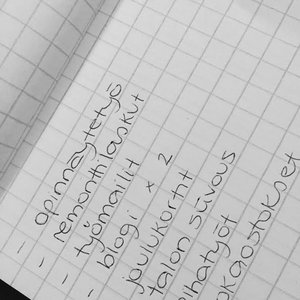 - opinnäytetyö
- remonttilaskut
- työmailit
- blogi x 2
joulukortit
talon siivous
pihatyöt
ruokaostokset